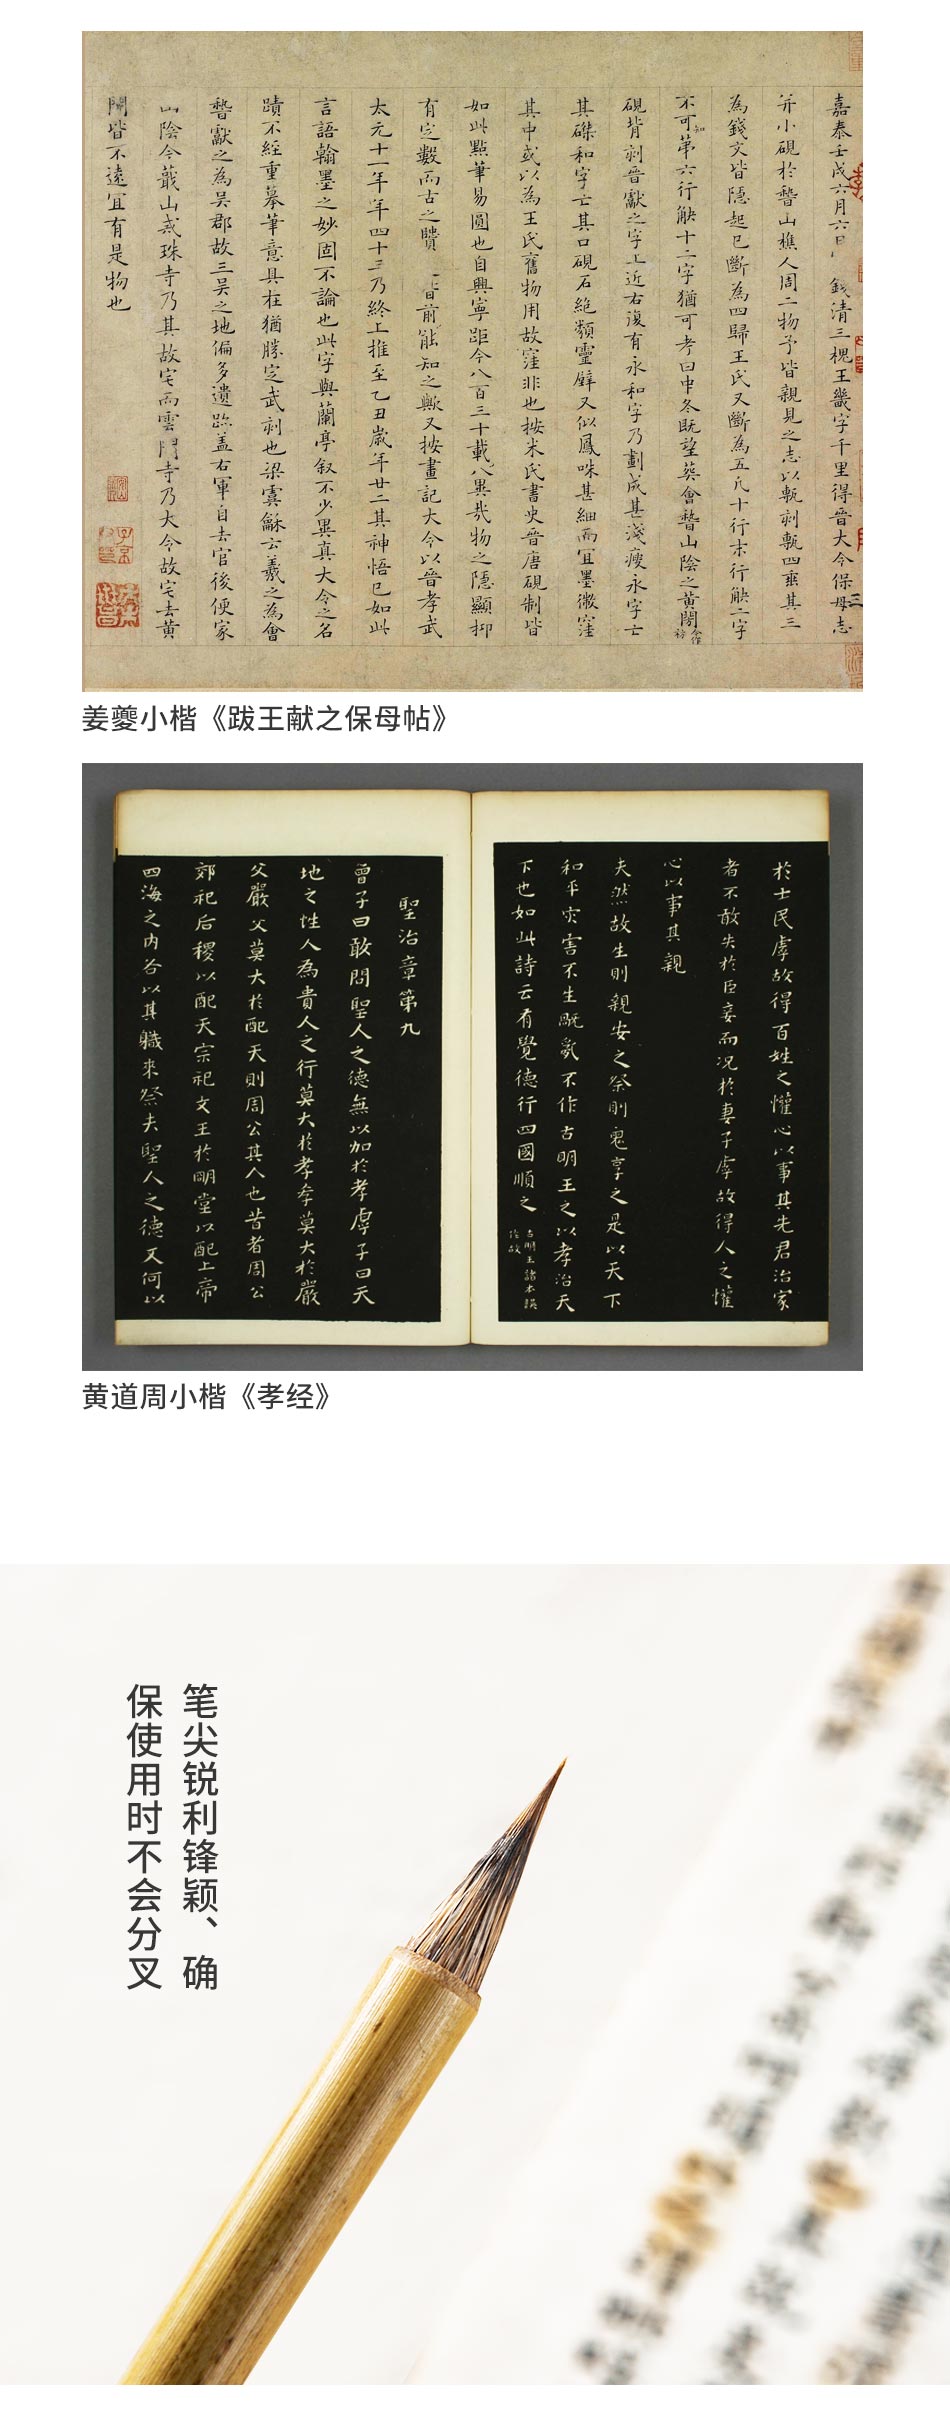 嘉泰壬戌六月六日 錢清三槐王畿字千里得晉大令保母志
并小硯於稽山樵人周二物予皆親見之志以甎刻甎四垂其三
為錢文皆隱起已斷為四歸王氏又斷為五凡十行末行缺二字
不可知第六行缺十二字猶可考曰中冬既望葬會稽山陰之黃閍
硯背刻晉獻之字上近右復有永和字乃劃成甚淺瘦永字亡
其磔和字亡其口硯石絕類靈璧又似鳳咮甚細而宜墨微窪
其中或以為王氏舊物用故窪非也按米氏書史晉唐硯制皆
如此點筆易圓也自興寧距今八百三十載八異哉物之隱顯抑
有定數而古之賢 前能知之歟又按畫記大令以晉孝武
太元十一年年四十三乃終上推至乙丑歲年廿二其神悟已如此
言語翰墨之妙固不論也此字與蘭亭叙不少異真大令之名
蹟不經重摹筆意具在猶勝定武刻也梁虞龢云羲之為會
稽獻之為吳郡故三吳之地偏多遺跡蓋右軍自去官後便家
山陰今蕺山戒珠寺乃其故宅而雲門寺乃大令故宅去黃
閍皆不遠宜有是物也
姜夔小楷《跋王献之保母帖》
於士民虖故得百姓之懽心以事其先君治家
者不敢失於臣妾而况於妻子虖故得人之懽
心以事其親
夫然故生則親安之祭則鬼享之是以天下
和平灾害不生既亂不作古明王之以孝治天
下也如此詩云有覺德行四國順之
聖治章第九
曾子曰敢問聖人之德無以加於孝虖子曰天
地之性人為貴人之行莫大於孝孝莫大於嚴
父嚴父莫大於配天則周公其人也昔者周公
郊祀后稷以配天宗祀文王於明堂以配上帝
四海之内各以其職來祭夫聖人之德又何以
黄道周小楷《孝经》
笔尖锐利锋颖、确
保使用时不会分叉